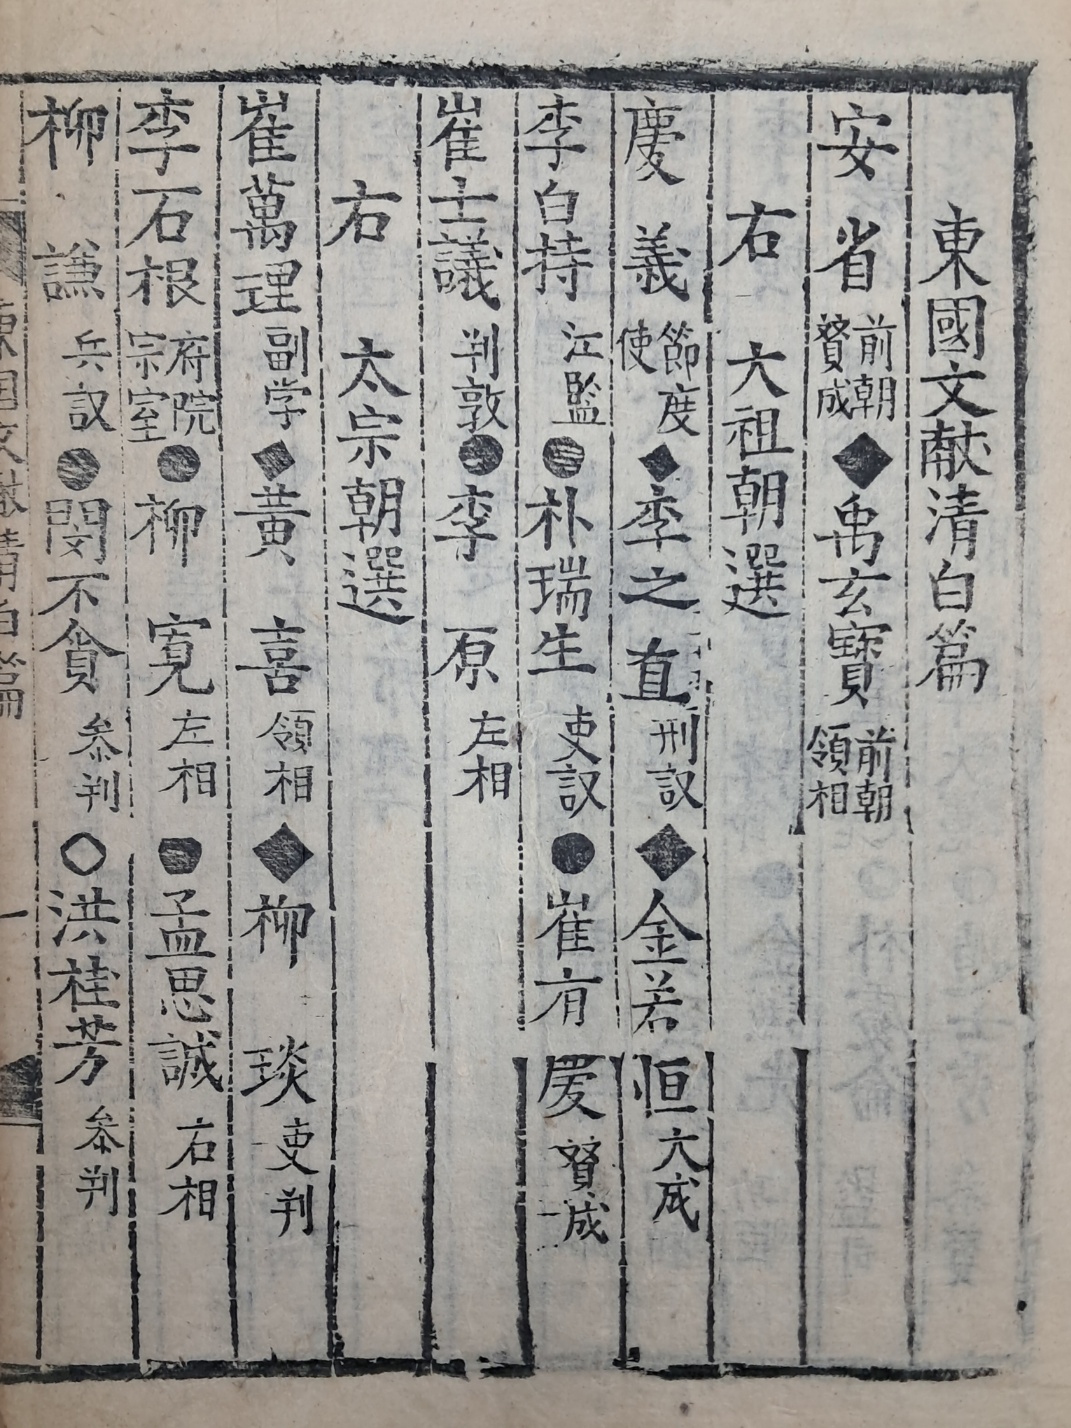 東國文献清白篇
安 省 前朝賛成◆禹玄寶 前朝領相
右 大祖朝選
慶 義 節度使◆李之直 刑议◆金若恒 大成
李白持 江監●朴瑞生 吏议●崔有慶 賛成
崔士議 判敦●李 原 左相
右 太宗朝選
崔萬理 副学◆黃 喜 領相◆柳 琰 吏判
李石根 府院宗室●柳 寛 左相●孟思誠 右相
柳 謙 兵议●閔不貪 叅判◇洪桂芳 叅判
東國文献清白篇 一